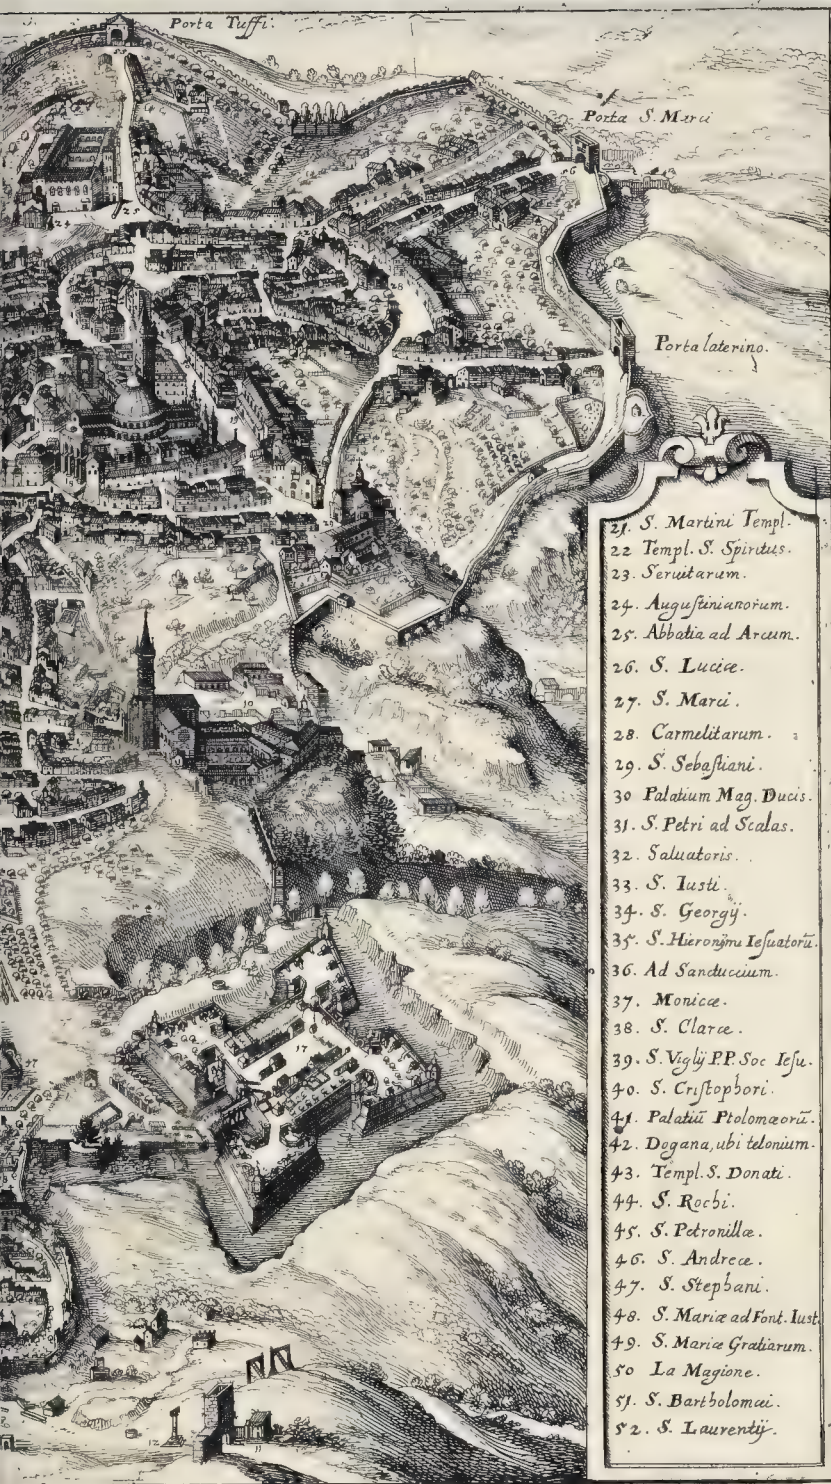 Porta Tuffi.
Porta S. Marci
Porta laterino.
21. S. Martini Templ.
22 Templ. S. Spiritus.
23. Seruitarum.
24. Auguſtinianorum.
25. Abbatia ad Arcum.
26. S. Luciæ.
27. S. Marci.
28. Carmelitarum.
29. S. Sebaſtiani.
30 Palatium Mag. Ducis.
31. S. Petri ad Scalas.
32. Saluatoris.
33. S. Iusti.
34. S. Georgij.
35. S. Hieronjmi Ieſuatorũ.
36. Ad Sanctuccium.
37. Monicæ.
38. S. Claræ.
39. S. Viglij PP. Soc Ieſu.
40. S. Criſtophori.
41. Palatiũ Ptolomæorũ.
42. Dogana, ubi telonium.
43. Templ. S. Donati.
44. S. Rochi.
45. S. Petronillæ.
46. S. Andreæ.
47. S. Stephani.
48. S. Mariæ ad Font. Iust.
49. S. Mariæ Gratiarum.
50 La Magione.
51. S. Bartholomæi.
52. S. Laurentij.
25
28
10
17
11